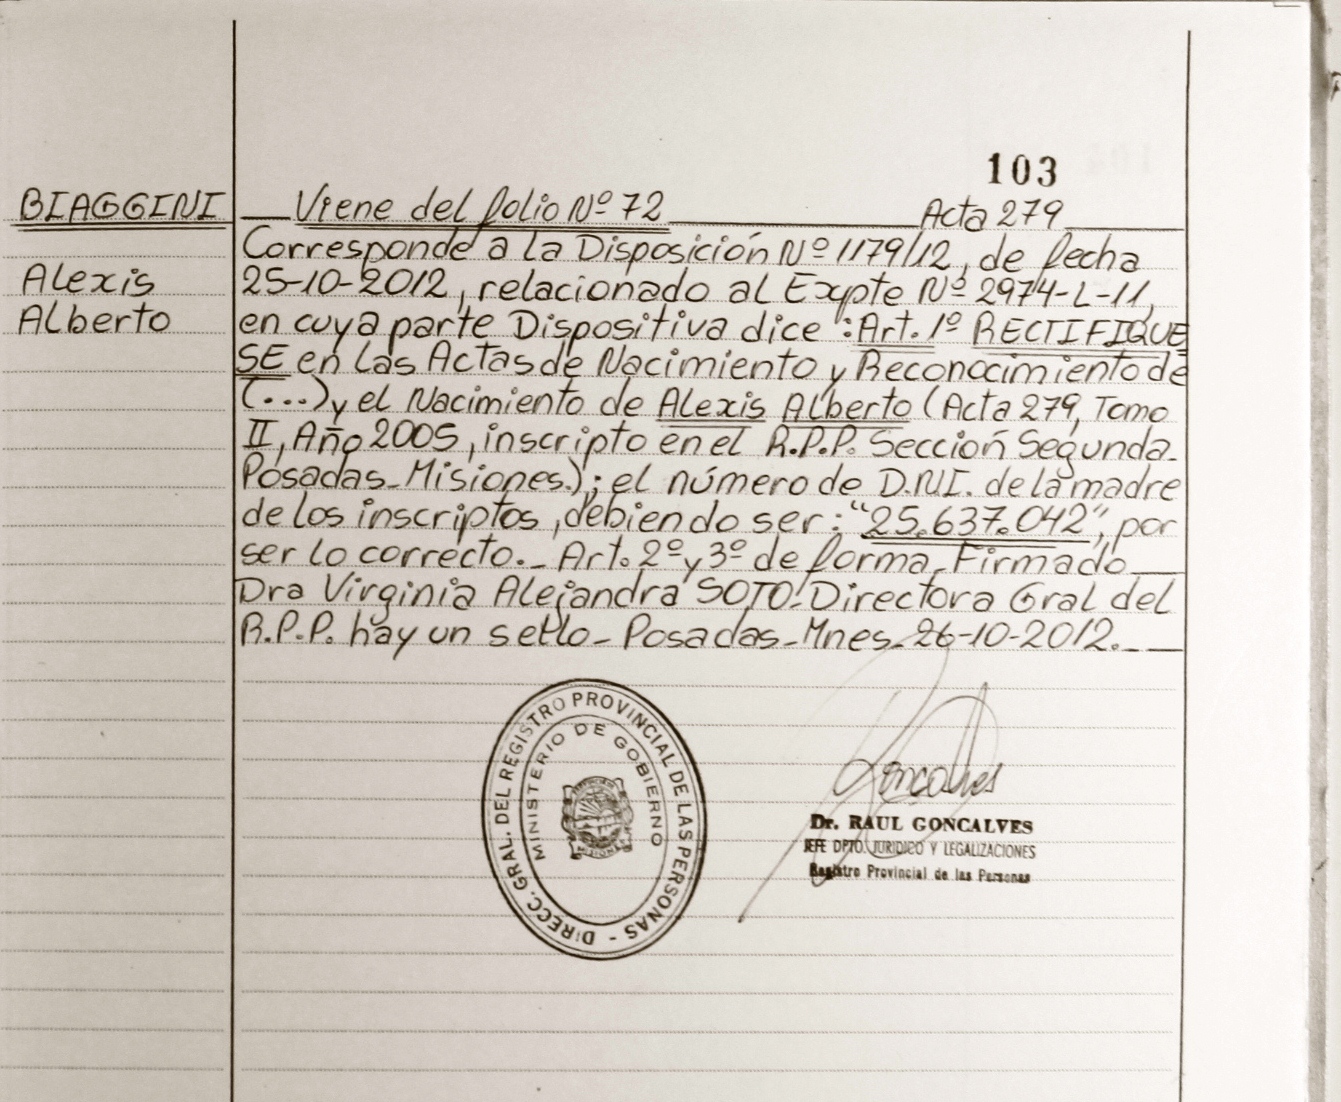 103
BIAGGINI
Alexis
Alberto
Viene del folio Nº 72 Acta 279
Corresponde a la Disposición Nº 1179/12, de fecha
25-10-2012, relacionado al Expte Nº 2974-L-11,
en cuya parte Dispositiva dice: Art. 1º RECTIFIQUE
SE en las Actas de Nacimiento y Reconocimiento de
(...) y el Nacimiento de Alexis Alberto (Acta 279, Tomo
II, Año 2005, inscripto en el R.P.P. Sección Segunda-
Posadas-Misiones.); el número de D.N.I. de la madre
de los inscriptos, debiendo ser: "25.637.042", por
ser lo correcto._ Art. 2º y 3º de forma_Firmado
Dra Virginia Alejandra SOTO-Directora Gral del
R.P.P. hay un sello_ Posadas_Mnes_26-10-2012._
DIRECC. GRAL. DEL REGISTRO PROVINCIAL DE LAS PERSONAS -
MINISTERIO DE GOBIERNO
MISIONES
Goncalves
Dr. RAUL GONCALVES
JEFE DPTO. JURIDICO Y LEGALIZACIONES
Registro Provincial de las Personas